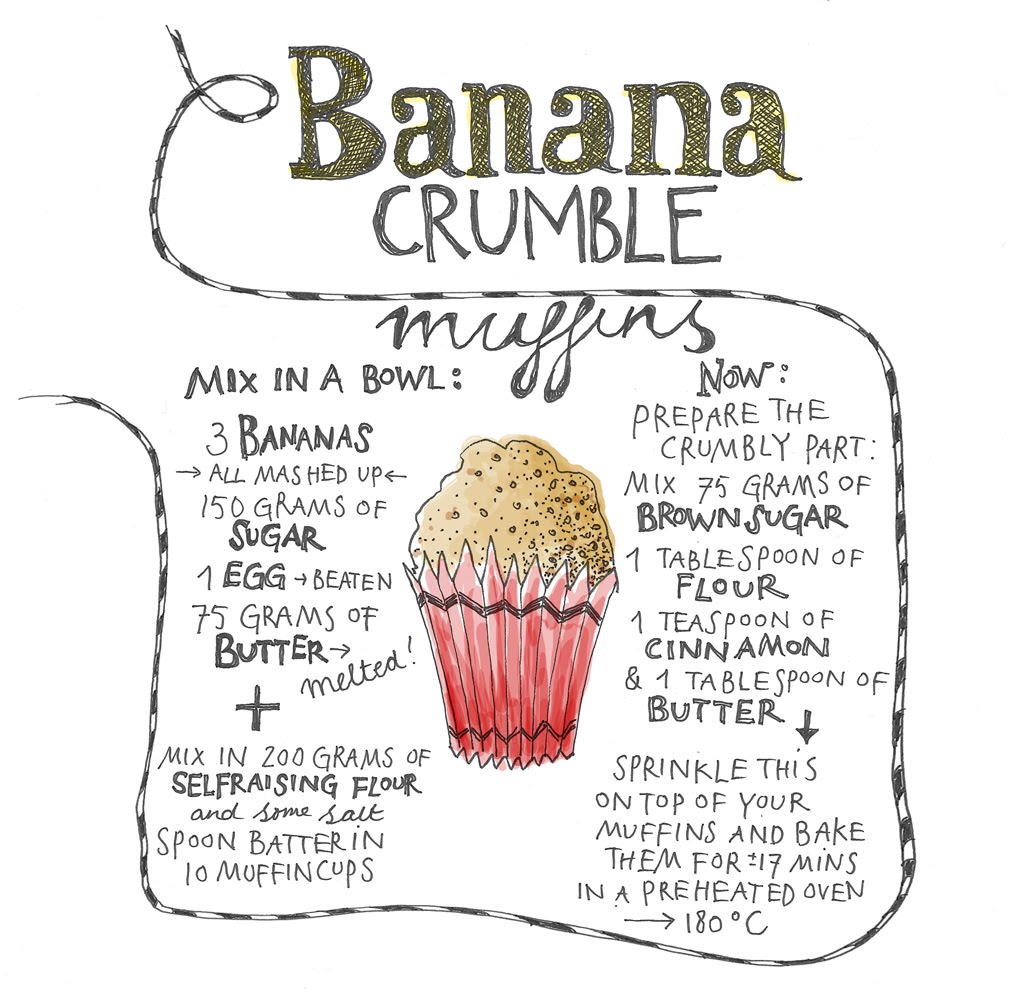 Banana
CRUMBLE
muffins
MIX IN A BOWL:
3 BANANAS
→ ALL MASHED UP ←
150 GRAMS OF
SUGAR
1 EGG → BEATEN
75 GRAMS OF
BUTTER →
melted!
+
MIX IN 200 GRAMS OF
SELFRAISING FLOUR
and some salt
SPOON BATTER IN
10 MUFFINCUPS
NOW:
PREPARE THE
CRUMBLY PART:
MIX 75 GRAMS OF
BROWN SUGAR
1 TABLESPOON OF
FLOUR
1 TEASPOON OF
CINNAMON
& 1 TABLESPOON OF
BUTTER ↓
SPRINKLE THIS
ON TOP OF YOUR
MUFFINS AND BAKE
THEM FOR ±17 MINS
IN A PREHEATED OVEN
→ 180°C